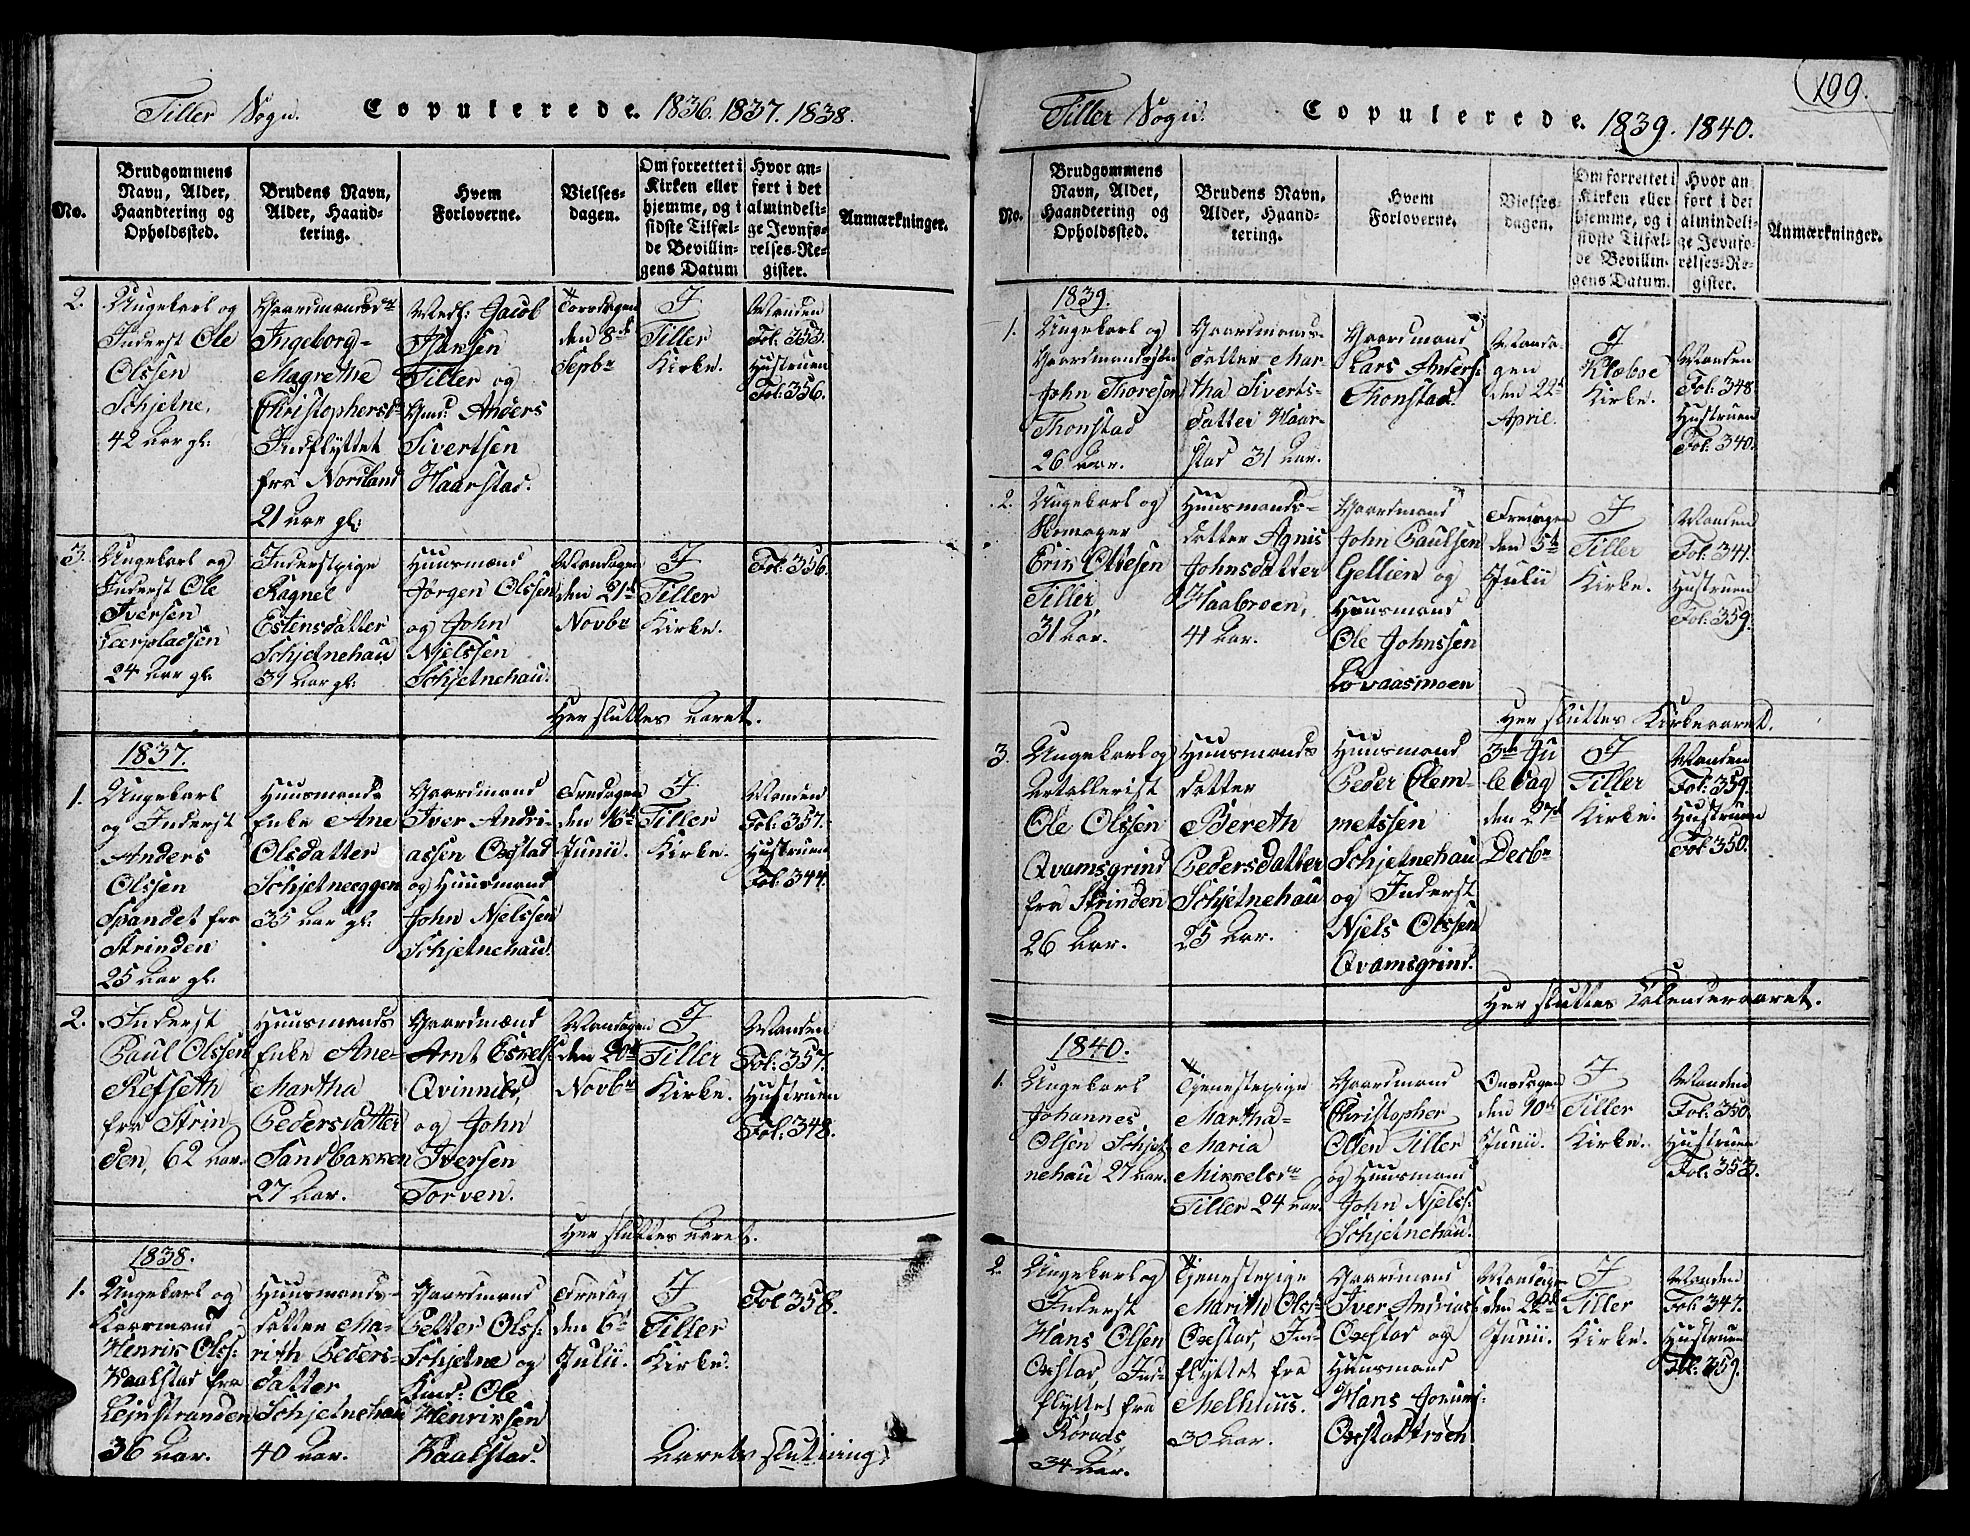 Tiller Sogn. Copulerede. 1836. 1837. 1838.
No.
Brudgommens
Navn, Alder,
Haandtering og
Opholdssted.
Brudens Navn,
Alder, Haand-
tering.
Hvem
Forloverne.
Vielses-
dagen.
Om forrettet i
Kirken eller
hjemme, og i
sidste Tilfæl-
de Bevillin-
gens Datum
Hvor an-
ført i det
almindeli-
ge Jevnfø-
relses-Re-
gister.
Anmærkninger.
2.
Ungekarl og
Inderst Ole
Olssen
Schjetne,
42 Aar gl:
Gaardmandsdr
Ingeborg-
Magrethe
Christophersd
Indflyttet
fra Nordland
21 aar gl:
Jacob
Hansen
Tiller og
Gmd: Anders
Sivertsen
Haarstad.
Torsdagen
den 8de
Septbr
I
Tiller
Kirke.
Manden
Fol: 353.
Hustruen
Fol: 356.
3.
Ungekarl og
Inderst Ole
Iversen
Leerpladsen
24 Aar gl:
Inderstpige
Ragnel
Estensdatter
Schjetnehau
31 Aar gl:
Huusmand
Jørgen Olssen
og John
Njelssen
Schjetnehau.
Mandagen
den 21de
Novbr
I
Tiller
Kirke.
Fol: 356.
Her sluttes Aaret.
1837.
1.
Ungekarl
og Inderst
Anders
Olssen
Spandet fra
Strinden
25 Aar gl:
Huusmands
Enke Ane
Olsdatter
Schjetneeggen
35 Aar gl:
Gaardmand
Iver Andri-
assen Oxstad
og Huusmand
John Njelssen
Schjetnehau.
Fredagen
den 16de
Junii.
I
Tiller
Kirke.
Manden
Fol: 357.
Hustruen
Fol: 344.
2.
Inderst
Paul Olssen
Refseth
fra Strin
den, 62 Aar.
Huusmands
Enke Ane-
Martha
Pedersdatter
Sandbakken
27 Aar.
Gaardmænd
Arnt Eskels:
Qvinnild,
og John
Iversen
Torven.
Mandagen
den 20de
Novbr
I
Tiller
Kirke.
Manden
Fol: 357.
Hustruen
Fol: 348.
Her sluttes Aaret.
1838.
1.
Ungekarl og
Henrik Olss:
Kaalstad fra
Leinstranden
36 Aar.
Huusmands-
datter Ma-
rith Peders-
datter
Schjetnehau
40 Aar.
Gaardmand
Petter Olss:
Schjetne og
Gmd: Ole
Henriksen
Kaalstad.
Fredag
den 6te
Julii.
I
Tiller
Kirke.
Fol 358.
Aarets slutning.
199.
Tiller Sogn. Copulerede. 1839. 1840.
No.
Brudgommens
Navn, Alder,
Haandtering og
Opholdssted.
Brudens Navn,
Alder, Haand-
tering.
Hvem
Forloverne.
Vielses-
dagen.
Om forrettet i
Kirken eller
hjemme, og i
sidste Tilfæl-
de Bevillin-
gens Datum.
Hvor an
ført i det
almindeli-
ge Jevnfø-
relses-Re-
gister.
Anmærkninger.
1839.
1.
Ungekarl og
Gaardmandssøn
John Thoresen
Thonstad
26 Aar.
Gaardmands-
datter Mar-
tha Siverts-
datter Haar-
stad 31 Aar.
Gaardmand
Lars Anders:
Thonstad.
Manda-
gen
den 22de
April.
I
Klæboe
Kirke.
Manden
Fol: 348
Hustruen
Fol: 340.
2.
Ungekarl og
Skomager
Erik Ottesen
Tiller,
31 Aar.
Huusmands-
datter Agnis
Johnsdatter
Haabroen,
41 Aar.
Gaardmand
John Paulsen
Gellien og
Huusmand
Ole Johnssen
Løvaasmoen
Fredagen
den 5te
Julii
I
Tiller
Kirke.
Manden
Fol: 341.
Hustruen
Fol: 359.
Her sluttes Kirkeaaret.
3.
Ungekarl og
Artallerist
Ole Olssen
Qvamsgrind
fra Strinden
26 Aar.
Huusmands
datter
Bereth
Pedersdatter
Schjetnehau
25 Aar.
Huusmand
Peder Clem-
metssen
Schjetnehau
og Inderst
Njels Olssen
Qvamsgrind.
3de Ju
ledag
den 27de
Decbr
I
Tiller
Kirke.
Manden
Fol: 359.
Hustruen
Fol 350.
Her sluttes Calenderaaret.
1840.
1.
Ungekarl
Johannes
Olsen Schjet-
nehau 27 Aar.
Tjenestepige
Martha-
Maria
Mikkelsdr
Tiller 24 Aar.
Gaardmand
Christopher
Olsen Tiller
og Huusmand
John Njelss:
Schjetnehau.
Onsdagen
den 10de
Junii.
I
Tiller
Kirke.
Manden
Fol: 350.
Hustruen
Fol: 353.
2.
Ungekarl og
Inderst
Hans Olsen
Oxstad, Ind-
flyttet fra
Røraas
34 Aar.
Tjenestepige
Marith Olsd:
Oxstad, Ind-
flyttet fra
Melhuus.
30 Aar.
Gaardmand
Iver Andriass:
Oxstad og
Huusmand
Hans
Oxstadtrøen
Mandagen
den 22de
Junii.
I
Tiller
Kirke.
Manden
Fol 347.
Hustruen
Fol: 359.